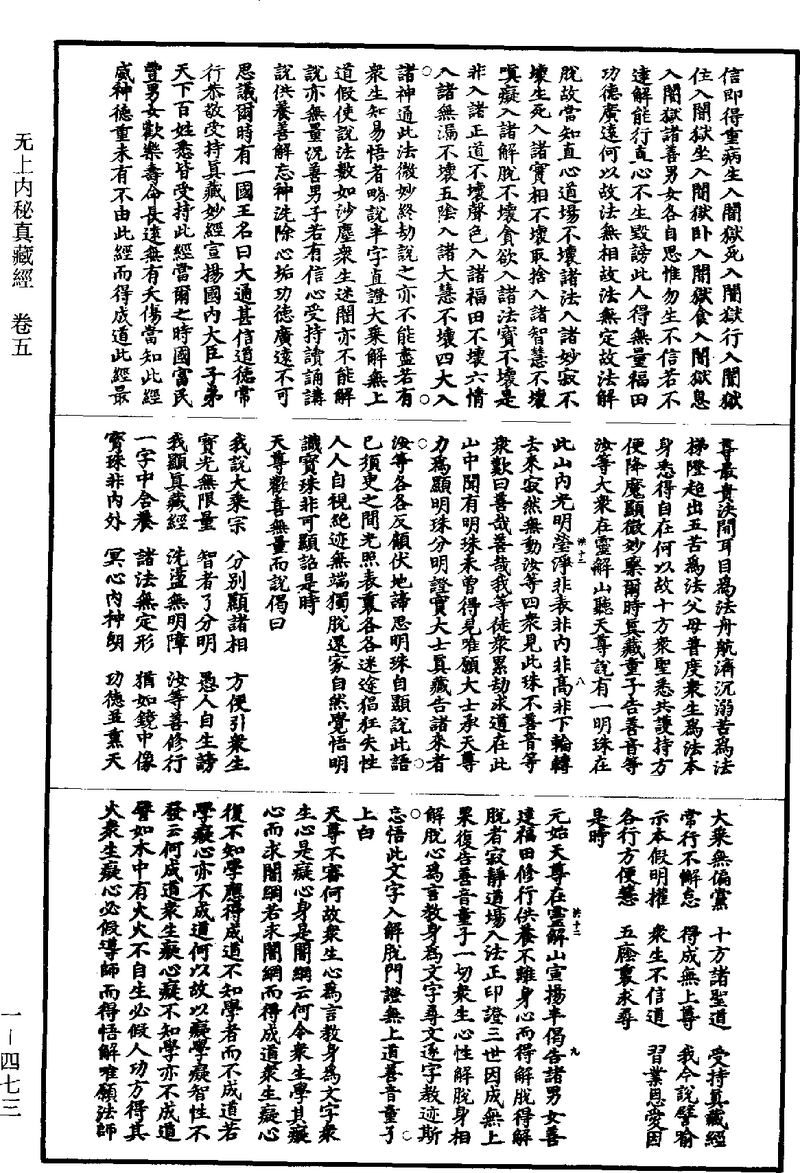 无上内秘真藏經 卷五
一—四七三
信即得重病生入闇獄死入闇獄行入闇獄
住入闇獄坐入闇獄卧入闇獄食入闇獄息
入闇獄諸善男女各自思惟勿生不信若不
達解能行直心不生毀謗此人得無量福田
功德廣遠何以故法無相故法無定故法解
脫故當知直心道場不壞諸法入諸妙寂不
壞生死入諸實相不壞取捨入諸智慧不壞
嗔癡入諸解脫不壞貪欲入諸法寶不壞是
非入諸正道不壞聲色入諸福田不壞六情
入諸無漏不壞五陰入諸大慧不壞四大入
諸神通此法微妙終劫說之亦不能盡若有
衆生知易悟者略說半字直證大乗解無上
道假使說法數如沙塵衆生迷闇亦不能解
說亦無量況善男子若有信心受持讀誦講
說供養善解忘种洗除心垢功德廣遠不可
思議爾時有一國王名曰大通甚信道德常
行恭敬受持真藏妙經宣揚國内大臣子弟
天下百姓悉皆受持此經當爾之時國富民
豐男女歡樂壽命長遠無有夭傷當知此經
威种德重未有不由此經而得成道此經最
尊最貴決開耳目爲法舟航濟沉溺苦爲法
梯隥超出五苦爲法父母普度衆生爲法本
身悉得自在何以故十方衆聖悉共護持方
便降魔顯微妙藥爾時真藏童子告善音等
汝等大衆在靈解山聽天尊說有一明珠在
此山内光明瑩淨非表非内非高非下輪轉
去來寂然無動汝等四衆見此珠不善音等
衆歎曰善哉善哉我等徒衆累劫求道在此
山中聞有明珠未曾得見唯願大士承天尊
力爲顯明珠分明證實大士真藏告諸來者
汝等各各反顧伏地諦思明珠自顯說此語
已須臾之間光照表裏各各迷途猖狂失性
人人自視絶迹無端獨脫還家自然覺悟明
識寶珠非可顯詔是時
天尊歡喜無量而說偈曰
我說大乗宗 分別顯諸相 方便引衆生
寶光無限量 智者了分明 愚人自生謗
我顯真藏經 洗盪無明障 汝等善修行
一字中含養 諸法無定形 猶如鏡中像
寶珠非内外 冥心内神朗 功德並熏天
大乗無偏黨 十方諸聖道 受持真藏經
常行不懈怠 得成無上尊 我今說譬喻
示本假明權 衆生不信道 習業恩愛因
各行方便慧 五廕裏求尋
是時
元始天尊在靈解山宣揚半偈告諸男女善
達福田修行供養不離身心而得解脫得解
脫者寂靜道場入法正印證三世因成無上
果復告善音童子一切衆生心性解脫身相
解脫心爲言教身爲文字尋文逐字教迹斯
忘悟此文字入解脫門證無上道善音童子
上白
天尊不審何故衆生心爲言教身爲文字衆
生心是癡心身是闇網云何令衆生學其癡
心而求闇網若求闇網而得成道衆生癡心
復不知學應得成道不知學者而不成道若
學癡心亦不成道何以故以癡學癡智性不
發云何成道衆生癡心癡不知學亦不成道
譬如木中有火火不自生必假人功方得其
火衆生癡心必假導師而得悟解唯願法師